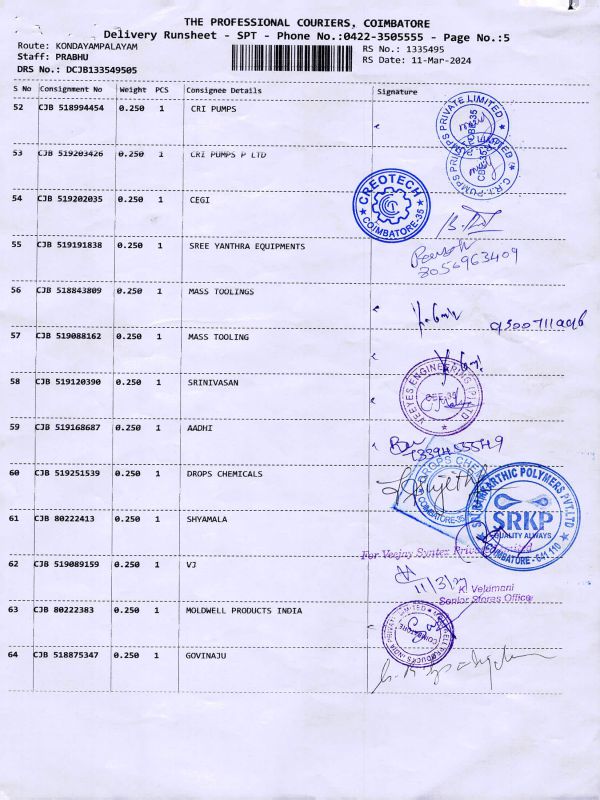 THE PROFESSIONAL COURIERS, COIMBATORE
Delivery Runsheet - SPT - Phone No.:0422-3505555 - Page No.:5
Route: KONDAYAMPALAYAM
RS No.: 1335495
Staff: PRABHU
RS Date: 11-Mar-2024
DRS No.: DCJB133549505
S No Consignment No Weight PCS Consignee Details Signature
52 CJB 518994454 0.250 1 CRI PUMPS
53 CJB 519203426 0.250 1 CRI PUMPS P LTD
54 CJB 519202035 0.250 1 CEGI
CREOTECH
COIMBATORE-35
55 CJB 519191838 0.250 1 SREE YANTHRA EQUIPMENTS
56 CJB 518843809 0.250 1 MASS TOOLINGS
57 CJB 519088162 0.250 1 MASS TOOLING
58 CJB 519120390 0.250 1 SRINIVASAN
VEEYES ENGINEERING (P) LTD
59 CJB 519168687 0.250 1 AADHI
60 CJB 519251539 0.250 1 DROPS CHEMICALS
DROPS CHE
COIMBATORE-35
61 CJB 80222413 0.250 1 SHYAMALA
KARTHIC POLYMERS PVT.LTD
SRKP
QUALITY ALWAYS
COIMBATORE - 641 110
For Veejay Syntex Private Limited
62 CJB 519089159 0.250 1 VJ
11/3/24
K. Velumani
Senior Stores Office
63 CJB 80222383 0.250 1 MOLDWELL PRODUCTS INDIA
64 CJB 518875347 0.250 1 GOVINAJU